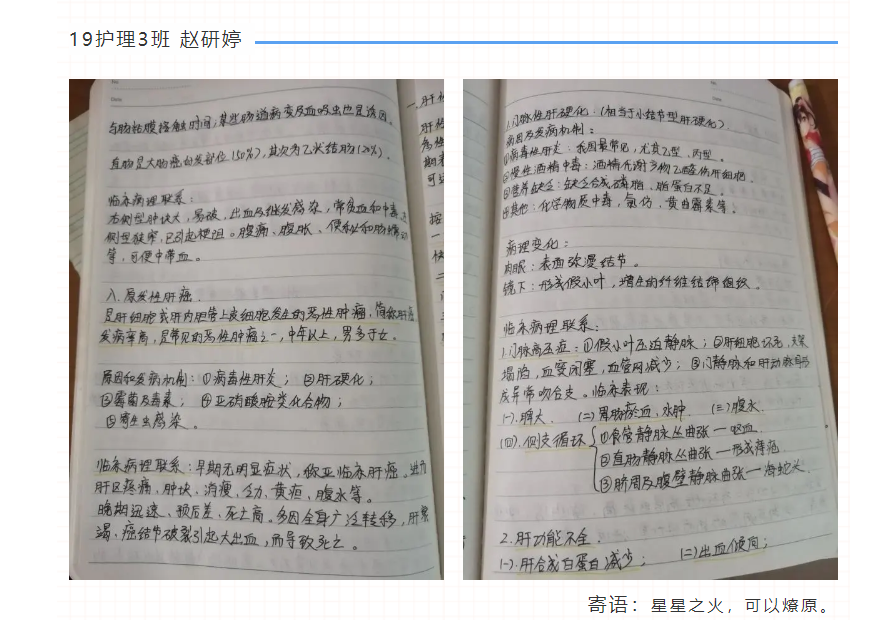 19护理3班 赵研婷
与肠粘膜接触时间,某些肠道病变及血吸虫也是诱因。
直肠是大肠癌好发部位(50%),其次为乙状结肠(20%)。
临床病理联系:
右侧型肿块大,易破,出血及继发感染,常贫血和中毒,
侧型狭窄,已引起梗阻。腹痛、腹胀、便秘和肠蠕动
等,可便中带血。
八、原发性肝癌
是肝细胞或肝内胆管上皮细胞发生的恶性肿瘤,简称肝癌
发病率高,是常见的恶性肿瘤之一,中年以上,男多于女。
原因和发病机制:①病毒性肝炎;②肝硬化;
③霉菌及毒素;④亚硝酸胺类化合物;
⑤寄生虫感染。
临床病理联系:早期无明显症状,称亚临床肝癌。进而
肝区疼痛、肿块、消瘦、乏力、黄疸、腹水等。
晚期迅速、预后差、死亡高。多因全身广泛转移,肝衰
竭、癌结节破裂引起大出血,而导致死亡。
1.门脉性肝硬化:(相当于小结节型肝硬化)
病因及发病机制:
①病毒性肝炎:我国最常见,尤其乙型、丙型。
②慢性酒精中毒:酒精代谢产物乙醛损伤肝细胞。
③营养缺乏:缺乏合成磷脂、脂蛋白不足。
④其他:化学物质中毒,氯仿、黄曲霉素等。
病理变化:
肉眼:表面弥漫结节。
镜下:形成假小叶,增生的纤维结缔组织。
临床病理联系:
1.门脉高压症:①假小叶压迫静脉;②肝细胞坏死,支架
塌陷,血窦闭塞,血管网减少;③门静脉和肝动脉间形
成异常吻合支。临床表现:
(一).脾大 (二)胃肠瘀血、水肿 (三)腹水
(四).侧支循环 ①食管静脉丛曲张—呕血
②直肠静脉丛曲张—形成痔疮
③脐周及腹壁静脉曲张—海蛇头
2.肝功能不全
(一).肝合成白蛋白减少; (二)出血倾向;
寄语:星星之火,可以燎原。